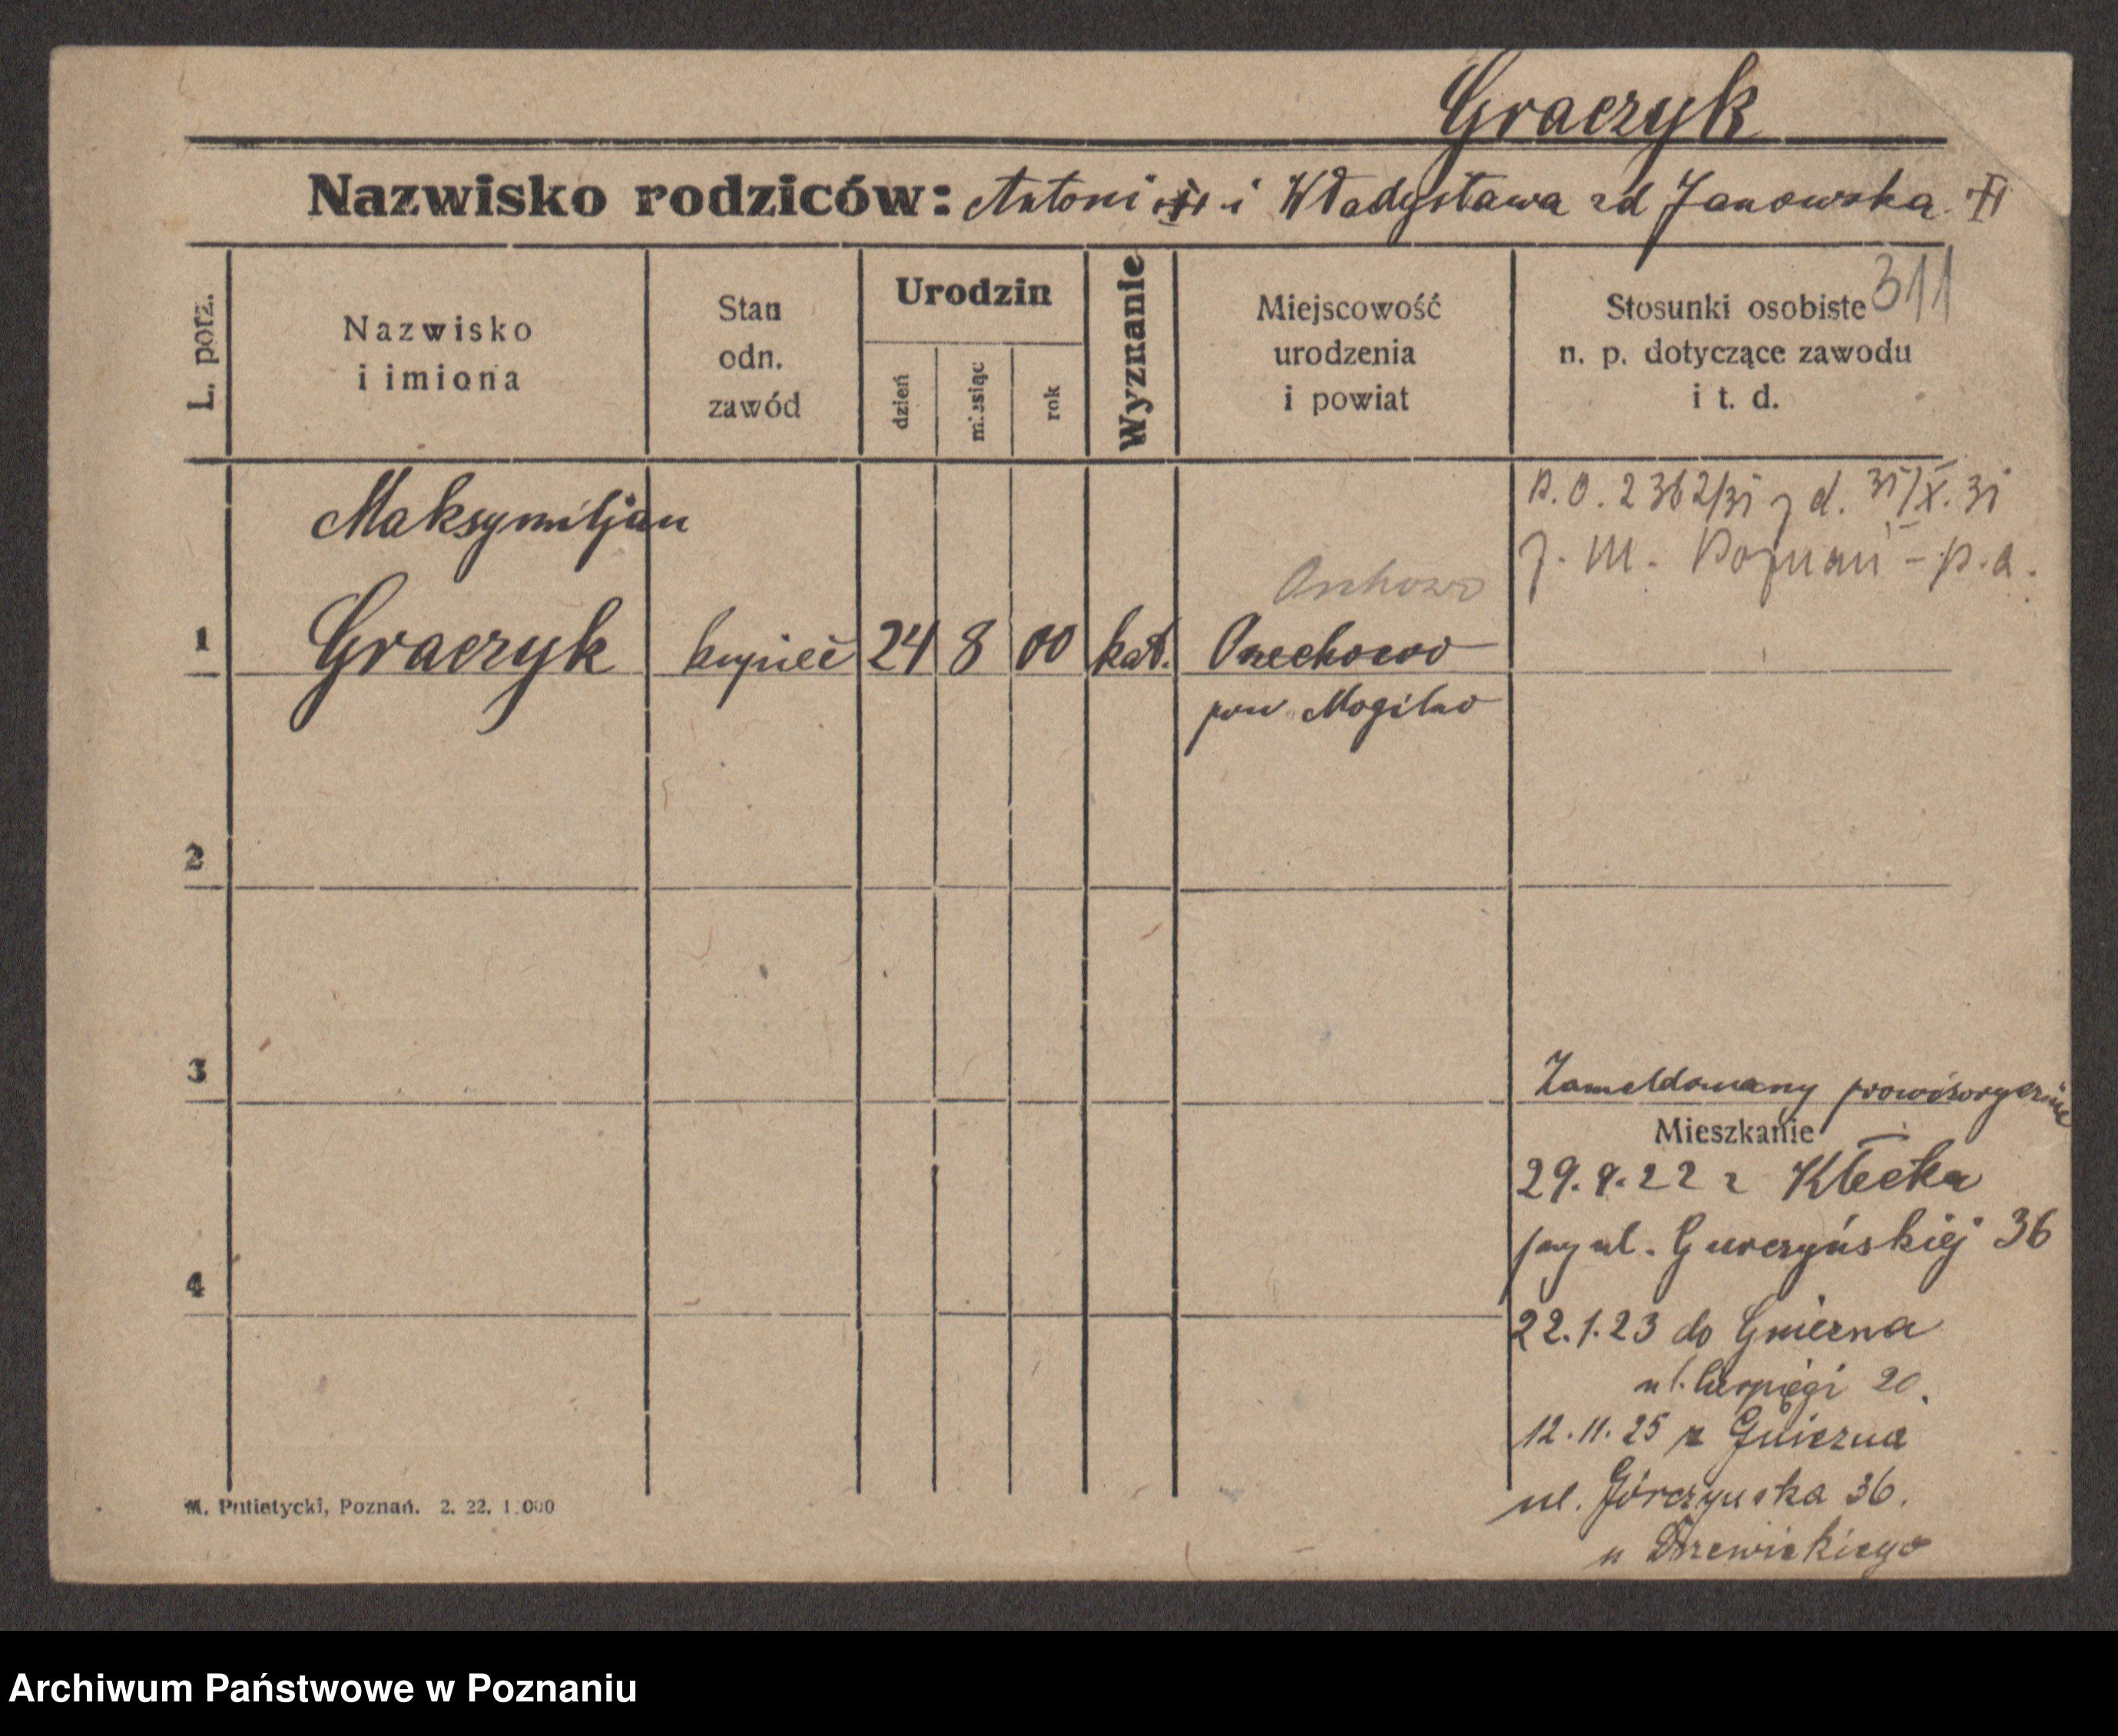 Graczyk
Nazwisko rodziców: Antoni i Władysława zd Janowska
311
L. porz.
Nazwisko
i imiona
Stan
odn.
zawód
Urodzin
dzień
miesiąc
rok
Wyznanie
Miejscowość
urodzenia
i powiat
Stosunki osobiste
n. p. dotyczące zawodu
i t. d.
P.O. 2362/31 z d. 31/X. 31
z. m. Poznań - p.a.
1
Maksymiljan
Graczyk
kupiec
24
8
00
kat.
Orchowo
Orzechowo
pow Mogilno
2
3
4
Zameldowany prowizorycznie
Mieszkanie
29.9.22 z Kłecka
przy ul. Gurczyńskiej 36
22.1.23 do Gniezna
ul. 20.
12.11.25 z Gniezna
ul. Górczynska 36.
u Drzewickiego
M. Putiatycki, Poznań. 2. 22. 1.000
Archiwum Państwowe w Poznaniu